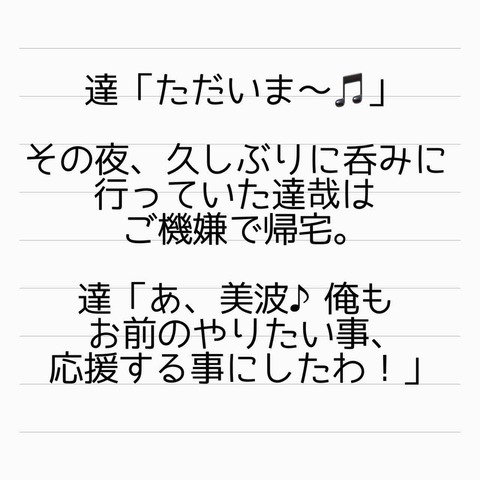 達「ただいま〜🎵」
その夜、久しぶりに呑みに
行っていた達哉は
ご機嫌で帰宅。
達「あ、美波♪ 俺も
お前のやりたい事、
応援する事にしたわ！」